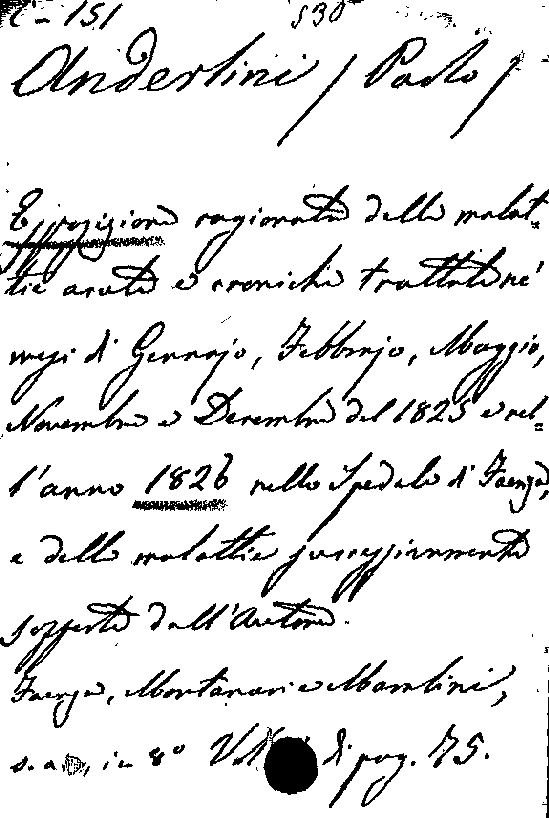 C - 151 530
Anderlini / Paolo /
Esposizione ragionata delle malat=
tie acute e croniche trattate ne'
mesi di Gennajo, Febbrajo, Maggio,
Novembre e Decembre del 1825 e nel=
l'anno 1826 nello Spedale di Faenza,
e delle malattie passeggieramente
sofferte dall'Autore.
Faenza, Montanari e Marabini,
s. a., in 8° di pag. 75.